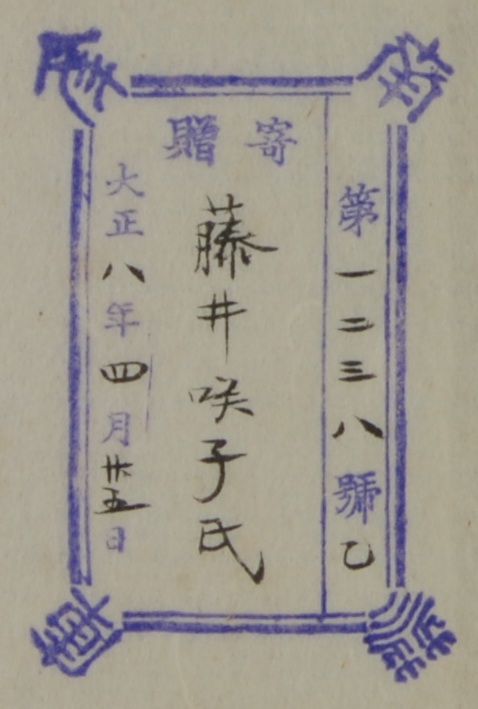 第一二三八號乙
寄贈
藤井咲子氏
大正八年四月廿五日